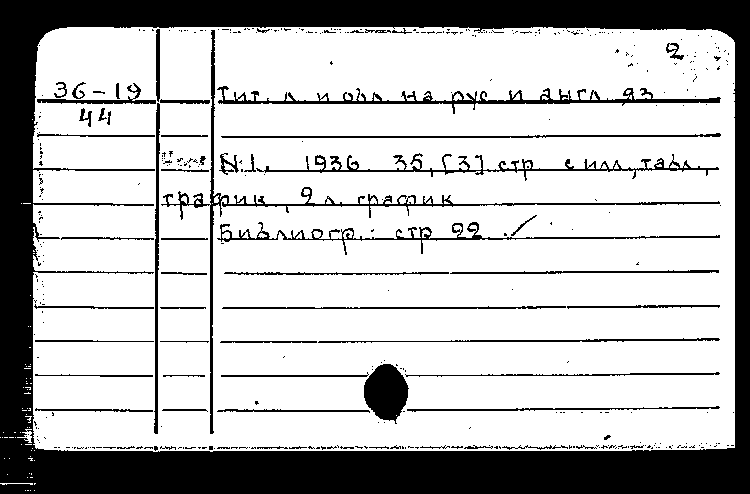 2
36-19
44
Тит. л. и обл. на рус и англ яз
N 1. 1936. 35, [3] стр с илл., табл.,
график, 2 л. график
Библиогр.: стр 22